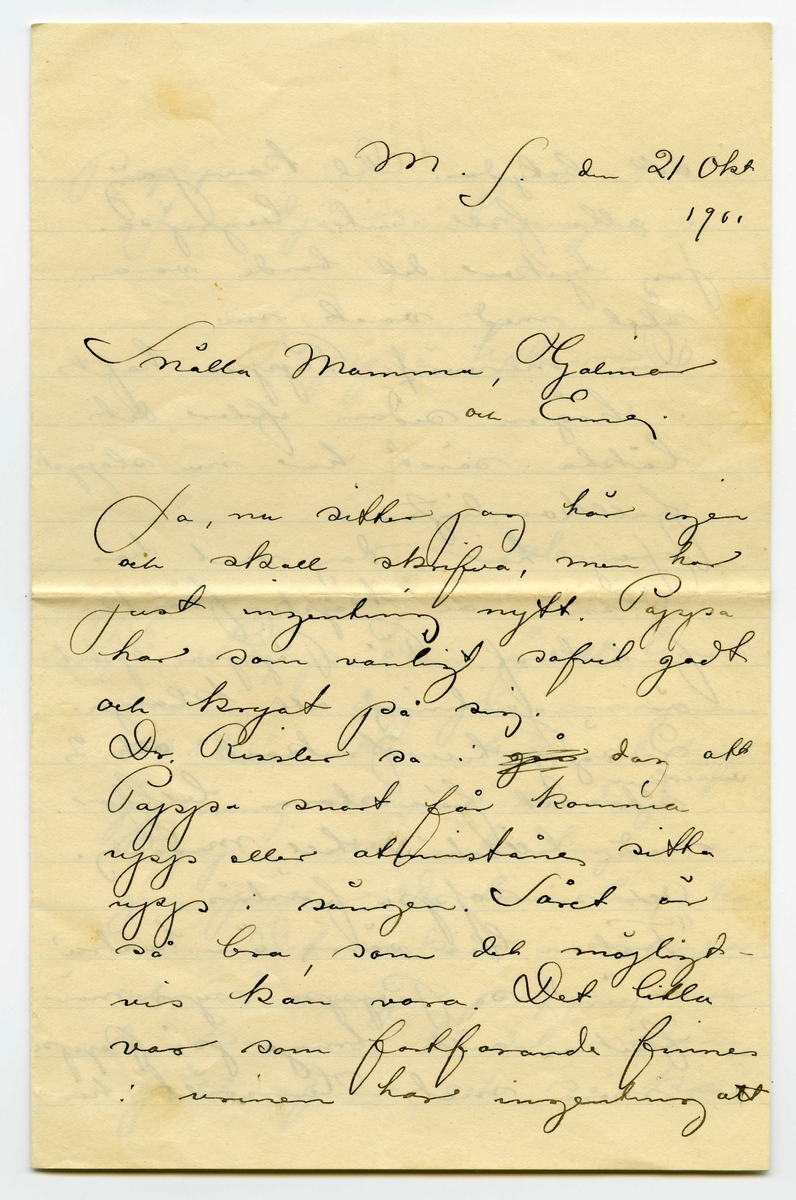 M. S. den 21 Okt
1901
Snälla Mamma, Hjalmar
och Emma.
Ja, nu sitter jag här igen
och skall skrifva, men har
just ingenting nytt. Pappa
har som vanligt sofvit godt
och kryat på sig.
Dr. Rissler sa i går dag att
Pappa snart får komma
upp eller åtminstone sitta
upp i sängen. Såret är
så bra, som det möjligt-
vis kan vara. Det lilla
var som fortfarande finnes
i urinen har ingenting att